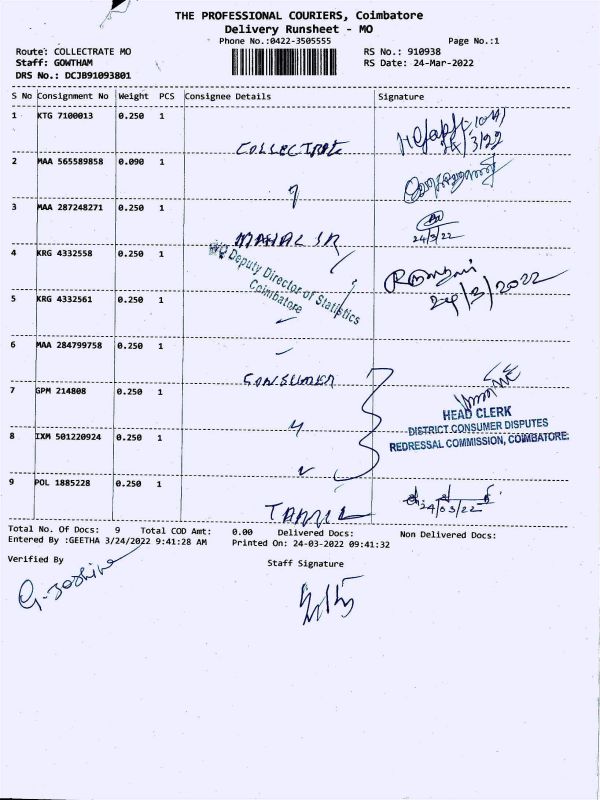 THE PROFESSIONAL COURIERS, Coimbatore
Delivery Runsheet - MO
Phone No.:0422-3505555
Page No.:1
Route: COLLECTRATE MO
RS No.: 910938
Staff: GOWTHAM
RS Date: 24-Mar-2022
DRS No.: DCJB91093801
S No Consignment No Weight PCS Consignee Details Signature
1 KTG 7100013 0.250 1
COLLECTRATE
2 MAA 565589858 0.090 1
3 MAA 287248271 0.250 1
MAHAL IR
24/3/22
4 KRG 4332558 0.250 1
Deputy Director of Statistics
Coimbatore
24/3/2022
5 KRG 4332561 0.250 1
6 MAA 284799758 0.250 1
CONSUMER
7 GPM 214808 0.250 1
HEAD CLERK
DISTRICT CONSUMER DISPUTES
REDRESSAL COMMISSION, COIMBATORE.
8 IXM 501220924 0.250 1
9 POL 1885228 0.250 1
TAMIL
24/03/22
Total No. Of Docs: 9 Total COD Amt: 0.00 Delivered Docs: Non Delivered Docs:
Entered By :GEETHA 3/24/2022 9:41:28 AM Printed On: 24-03-2022 09:41:32
Verified By
Staff Signature